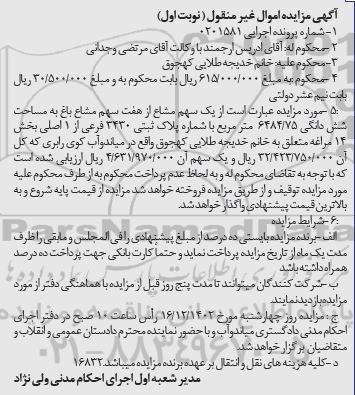 آگهی مزایده اموال غیر منقول (نوبت اول)
۱-شماره پرونده اجرایی ۰۲۰۱۵۸۱
۲-محکوم له: آقای ادریس ارجمند با وکالت آقای مرتضی وجدانی
۳-محکوم علیه: خانم خدیجه طلایی کهجوق
۴-محکوم به: مبلغ ۶۱۵/۰۰۰/۰۰۰ ریال بابت محکوم به و مبلغ ۳۰/۵۰۰/۰۰۰ ریال
بابت نیم عشر دولتی
۵-مورد مزایده عبارت است از یک سهم مشاع از هفت سهم مشاع باغ به مساحت
شش دانگی ۶۴۸۴/۷۵ متر مربع با شماره پلاک ثبتی ۳۴۳۰ فرعی از ۱ اصلی بخش
۱۴ مراغه متعلق به خانم خدیجه طلایی کهجوق واقع در میاندوآب کوی رابری که کل
آن ۳۲/۴۲۳/۷۵۰/۰۰۰ ریال و یک سهم آن ۴/۶۳۱/۹۷۰/۰۰۰ ریال ارزیابی شده است
که با توجه به تقاضای محکوم له و به لحاظ عدم پرداخت محکوم به از طرف محکوم علیه
مورد مزایده توقیف و از طریق مزایده فروخته خواهد شد مزایده از قیمت پایه شروع و به
بالاترین قیمت پیشنهادی واگذار خواهد شد.
۶-شرایط مزایده
الف-برنده مزایده بایستی ده درصد از مبلغ پیشنهادی را فی المجلس و مابقی را ظرف
مدت یک ماه از تاریخ مزایده پرداخت نماید و حتما کارت بانکی جهت پرداخت ده درصد
همراه داشته باشد
ب-شرکت کنندگان میتوانند تا مدت پنج روز قبل از مزایده با هماهنگی دفتر از مورد
مزایده بازدید نمایند.
ج: مزایده روز چهارشنبه مورخ ۱۶/۱۲/۱۴۰۲ راس ساعت ۱۰ صبح در دفتر اجرای
احکام مدنی دادگستری میاندوآب و با حضور نماینده محترم دادستان عمومی و انقلاب و
متقاضیان برگزار خواهد شد.
د-کلیه هزینه های نقل و انتقال بر عهده برنده مزایده میباشد. ۱۶۸۳۲
مدیر شعبه اول اجرای احکام مدنی ولی نژاد